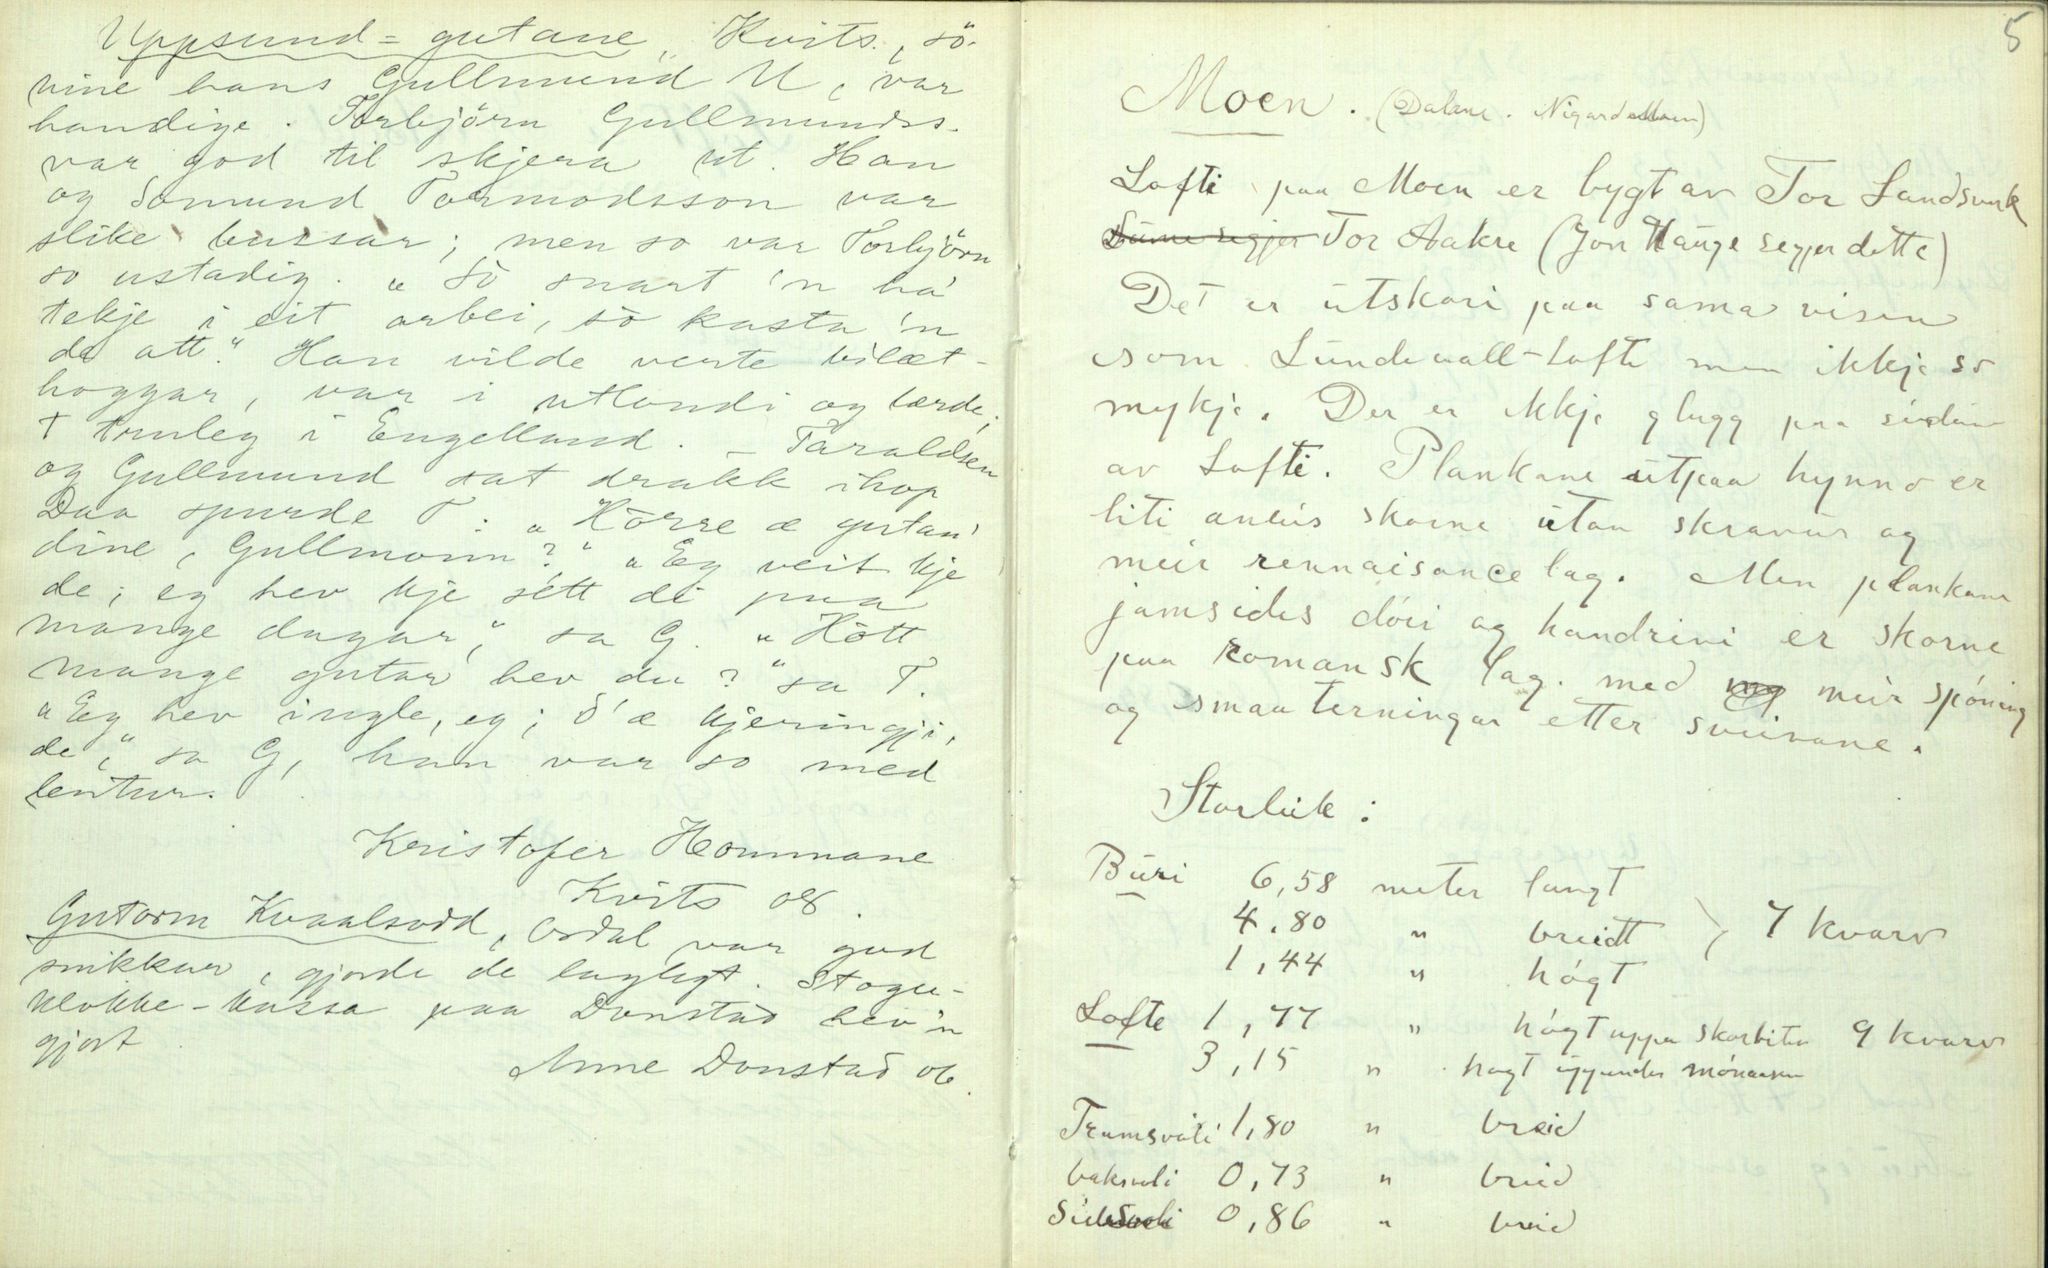 Uppsund=gutane, Kvits., sö-
nine hans Gullmund U, var
handige. Torbjörn Gullmundss.
var god til skjera ut. Han
og Somund Tormodsson var
slike bussar; men so var Torbjörn
so ustadig. „So snart 'n ha'
tekje i eit arbei, so kasta 'n
da att." Han vilde verte bilæt-
hoggar, var i utlondi og lærde,
+ truleg i Engelland. — Taraldsen
og Gullmund sat drakk ihop
Daa spurde T: „Hörre æ gutan'
dine, Gullmonn?" „Eg veit kje
de; eg hev kje sétt dei paa
mange dagar," sa G. „Hött
mange gutar hev du?" sa T.
„Eg hev ingle, eg; d'æ kjeringji,
de," sa G, han var so med
lentur.
Kristofer Hommane
Kvits og.
Gutorm Kvaalsodd, Osdal var god
snikkar, gjorde de laglegt. Stogu-
klokke-kassa paa Donstad hev'n
gjort
Anne Donstad og.
5
Moen. (Dalane. Nigard Moen)
Lofti paa Moen er bygt av Tor Landsverk
Sume segjer Tor Aakre (Jon Hauge segjer dette)
Det er utskori paa sama visen
som Lundevall-Lofte men ikkje so
mykje. Der er ikkje glugg paa sudein
av Lofti. Plankane utpaa hynno er
liti aneis skorne utan skravur og
meir rennaisance lag. Men plankane
jamsides döri og handrini er skorne
paa romansk lag. med meir spóning
og smaa terningar etter sveivane.
Storleik:
Buri 6,58 meter langt
4,80 " breidt } 7 kvarv
1,44 " högt
Lofte 1,77 " högt uppa skorbiten 9 kvarv
3,15 " hogt uppunder mónaasen
Framsvali 1,80 " breid
baksvali 0,73 " breid
Sidesvali 0,86 " breid